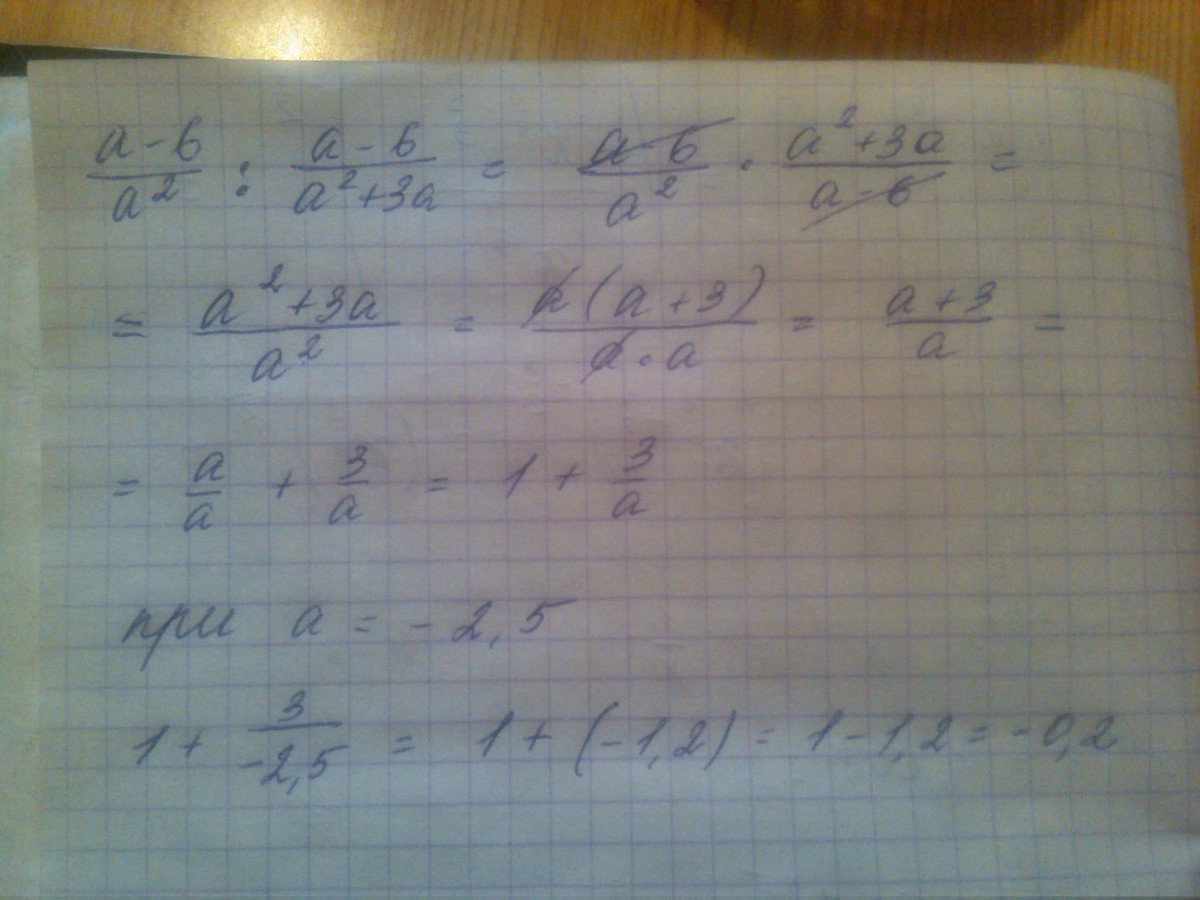 (a-6)/a² : (a-6)/(a²+3a) = (a-6)/a² · (a²+3a)/(a-6) =
= (a²+3a)/a² = a(a+3)/(a·a) = (a+3)/a =
= a/a + 3/a = 1 + 3/a
при a = -2,5
1 + 3/(-2,5) = 1 + (-1,2) = 1 - 1,2 = -0,2